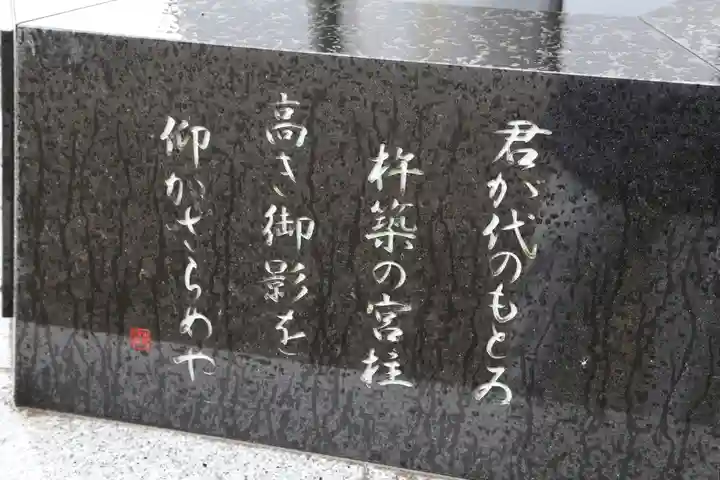 君が代のもとゐ
杵築の宮柱
高き御影を
仰かさらめや